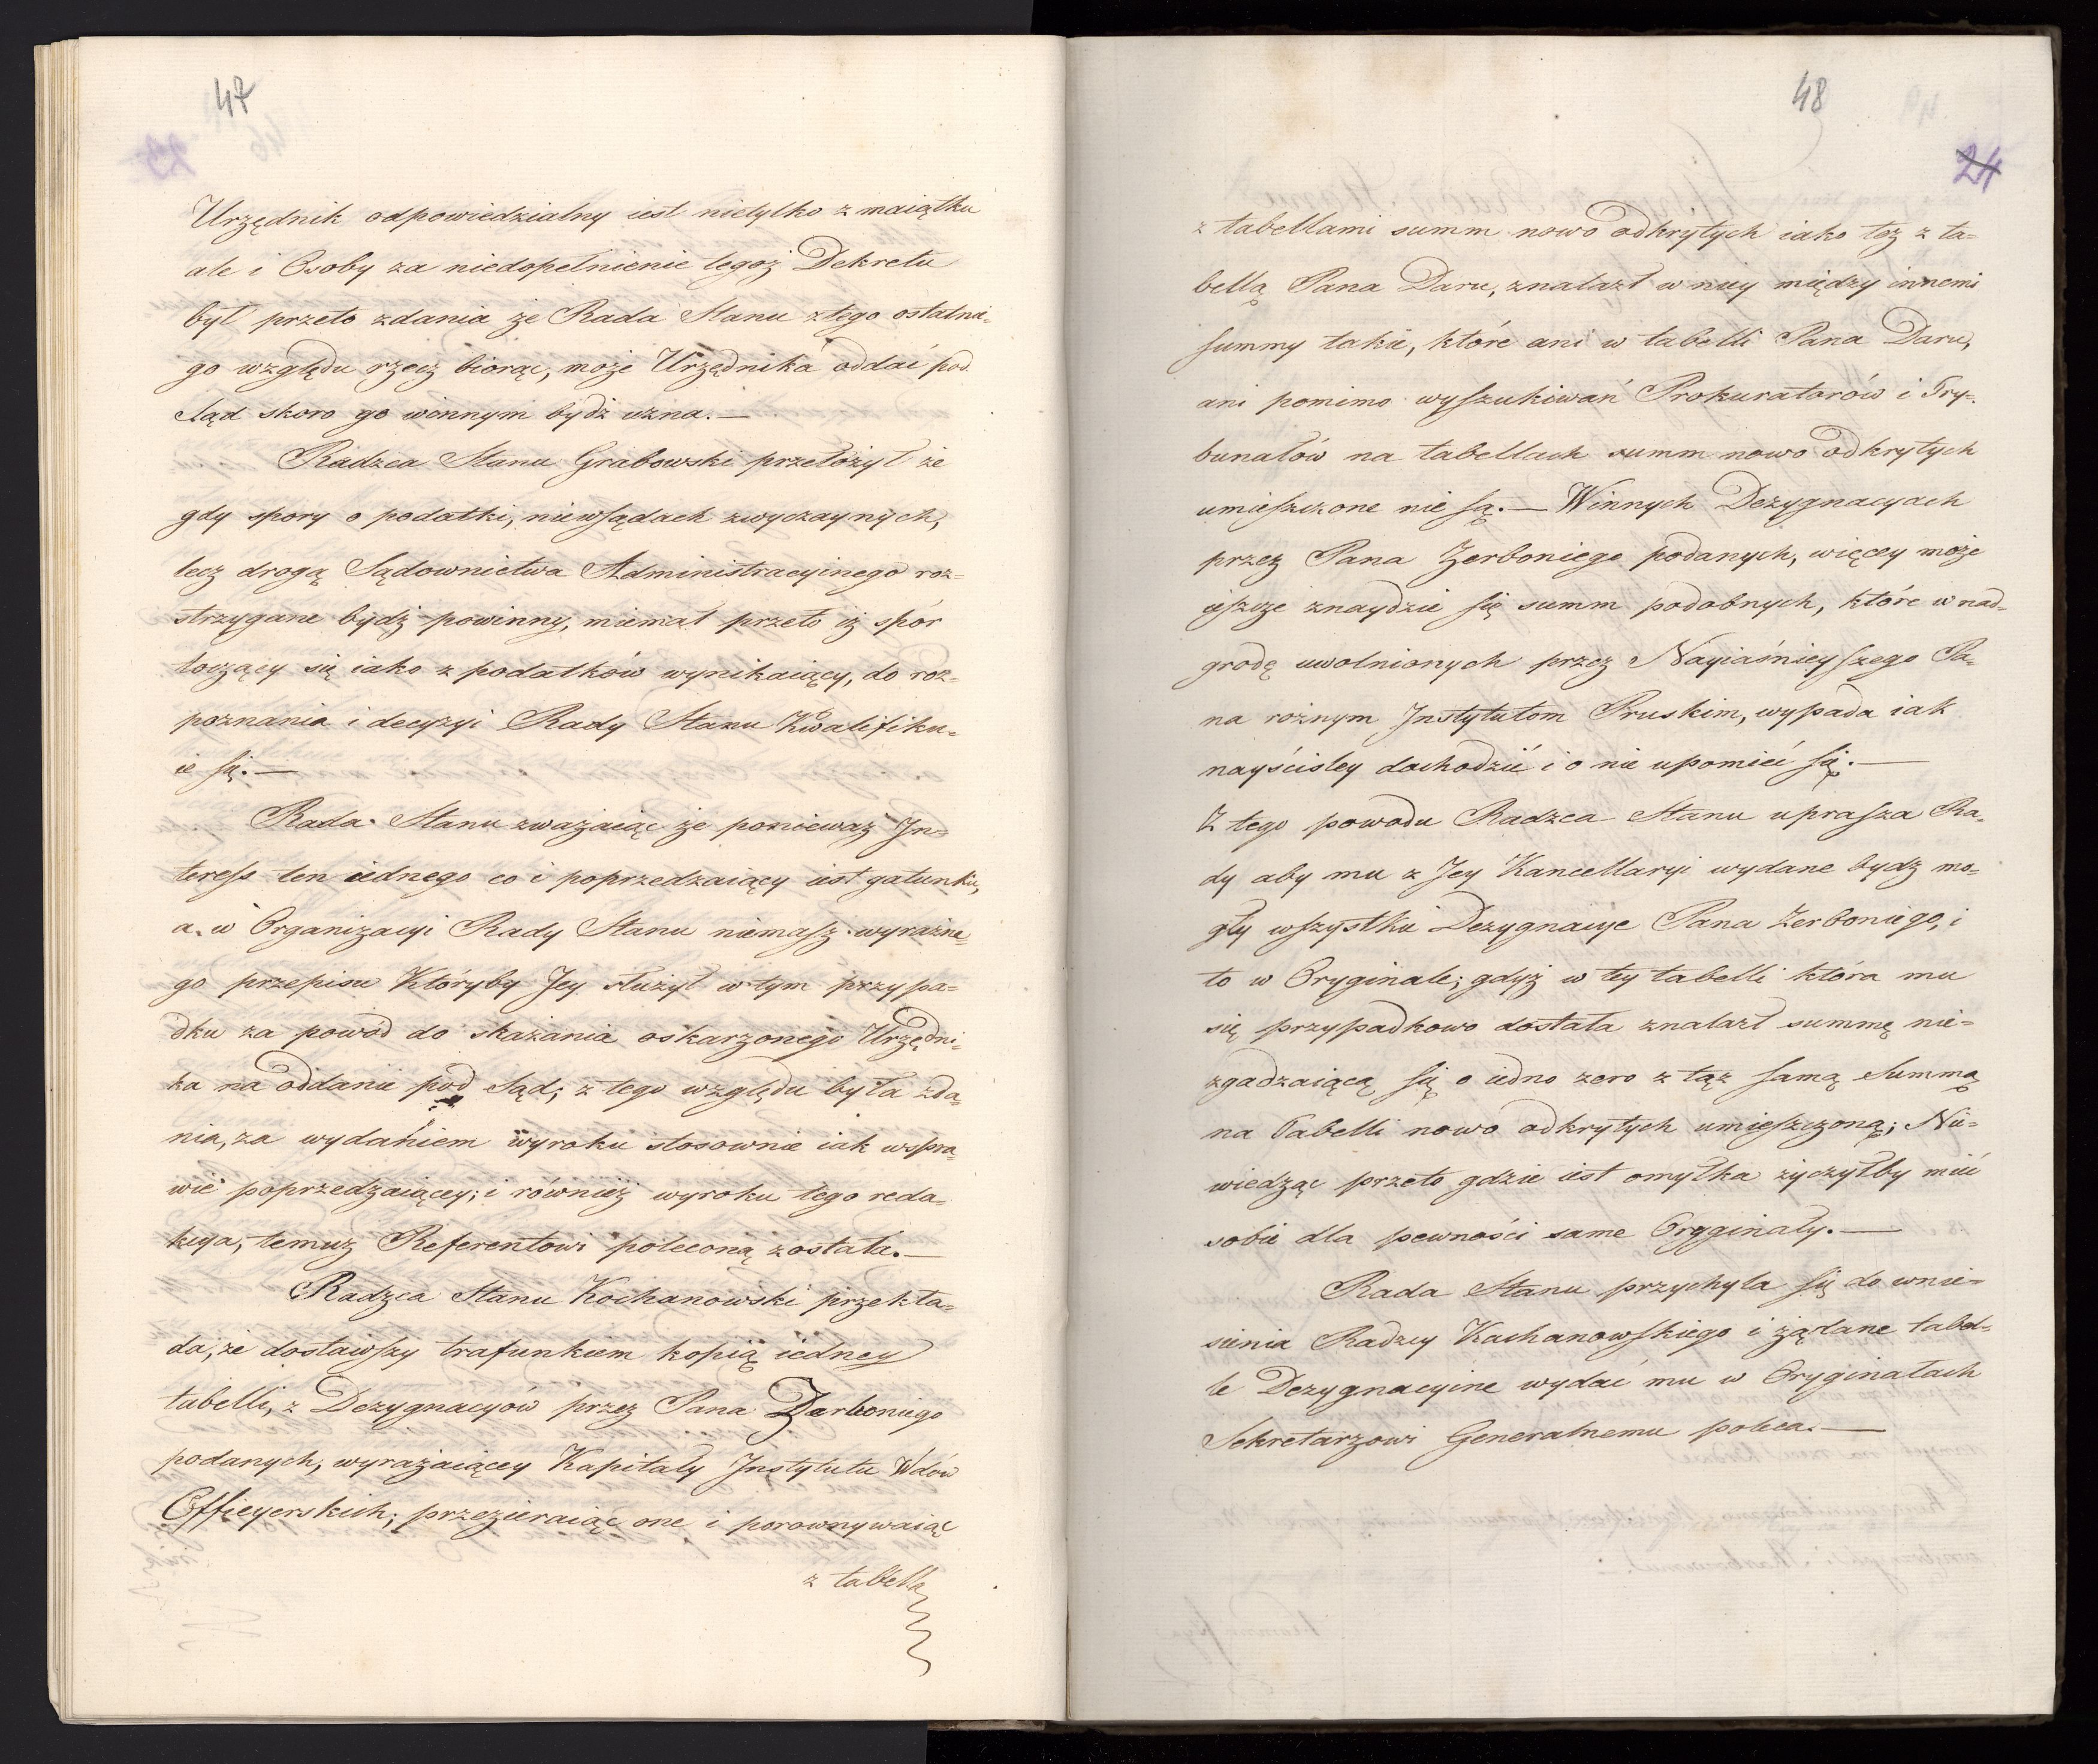 47
Urzędnik odpowiedzialny iest nietylko z maiątku
ale i Osoby za niedopełnienie tegoż Dekretu
był przeto zdania że Rada Stanu z tego ostatnie-
go względu rzecz biorąc, może Urzędnika oddać pod
Sąd skoro go winnym bydź uzna. —
Radzca Stanu Grabowski przełożył że
gdy spory o podatki, nie w sądach zwyczaynych,
lecz drogą Sądownictwa Administracyinego roz-
strzygane bydź powinny, mniemał przeto iż spór
toczący się iako z podatków wynikaiący, do roz-
poznania i decyzyi Rady Stanu Kwalifiku-
ie się. —
Rada Stanu zważaiąc że ponieważ In-
teress ten iednego co i poprzedzaiący iest gatunku,
a w Organizacyi Rady Stanu niemasz wyraźne-
go przepisu Któryby Jey służył w tym przypa-
dku za powód do skazania oskarzonego Urzędni-
ka na oddanie pod Sąd; z tego względu była zda-
nia, za wydaniem wyroku stosownie iak w spra-
wie poprzedzaiącey; i również wyroku tego reda-
kcya, temuż Referentowi poleconą została. —
Radzca Stanu Kochanowski przekła-
da, że dostawszy trafunkiem kopią iedney
tabelli, z Dezygnacyów przez Pana Zerboniego
podanych, wyrażaiącey Kapitały Instytutu Wdów
Officyerskich, przezieraiąc one i porownywaiąc
z tabella
48
24
z tabellami summ nowo odkrytych iako też z ta-
bellą Pana Daru, znalazł w niey między innemi
summy takie, które ani w tabelli Pana Daru,
ani pomimo wyszukiwań Prokuratorów i Try-
bunałów na tabellach summ nowo odkrytych
umieszczone nie są. — W innych Dezygnacyach
przez Pana Zerboniego podanych, więcey może
ieszcze znaydzie się summ podobnych, które w nad-
grodę uwolnionych przez Nayiaśnieyszego Pa-
na rożnym Instytutom Pruskim, wypada iak
nayściśley dochodzić i o nie upomieć się. —
Z tego powodu Radzca Stanu uprasza Ra-
dy aby mu z Jey Kancellaryi wydane bydź mo-
gły wszystkie Dezygnacye Pana Zerboniego, i
to w Oryginale; gdyż w tey tabelli która mu
się przypadkowo dostała znalazł summę nie-
zgadzaiącą się o iedno zero z tąż samą Summą
na Tabelli nowo odkrytych umieszczoną; Nie-
wiedząc przeto gdzie iest omyłka życzyłby mieć
sobie dla pewności same Oryginały. —
Rada Stanu przychyla się do wnie-
sienia Radzcy Kochanowskiego i żądane tabel-
le Dezygnacyine wydać mu w Oryginałach
Sekretarzowi Generalnemu poleca. —